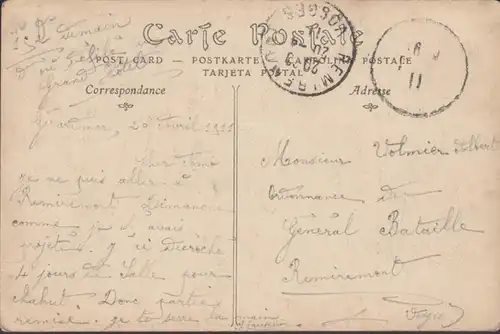 Carte Postale
POST CARD — POSTKARTE — CARTOLINA POSTALE
TARJETA POSTAL
Correspondance
Adresse
REMIREMONT VOSGES
11
demain
Grand
Gérardmer, 20 Avril 1911
Cher
je ne puis aller à
Remiremont Dimanche
comme je l'avais
projeté. J'ai décroché
4 jours de Salle pour
chahut. Donc partie
remise. Je te serre la main
Monsieur Volmier Albert
Ordonnance du
Général Bataille
Remiremont
Vosges